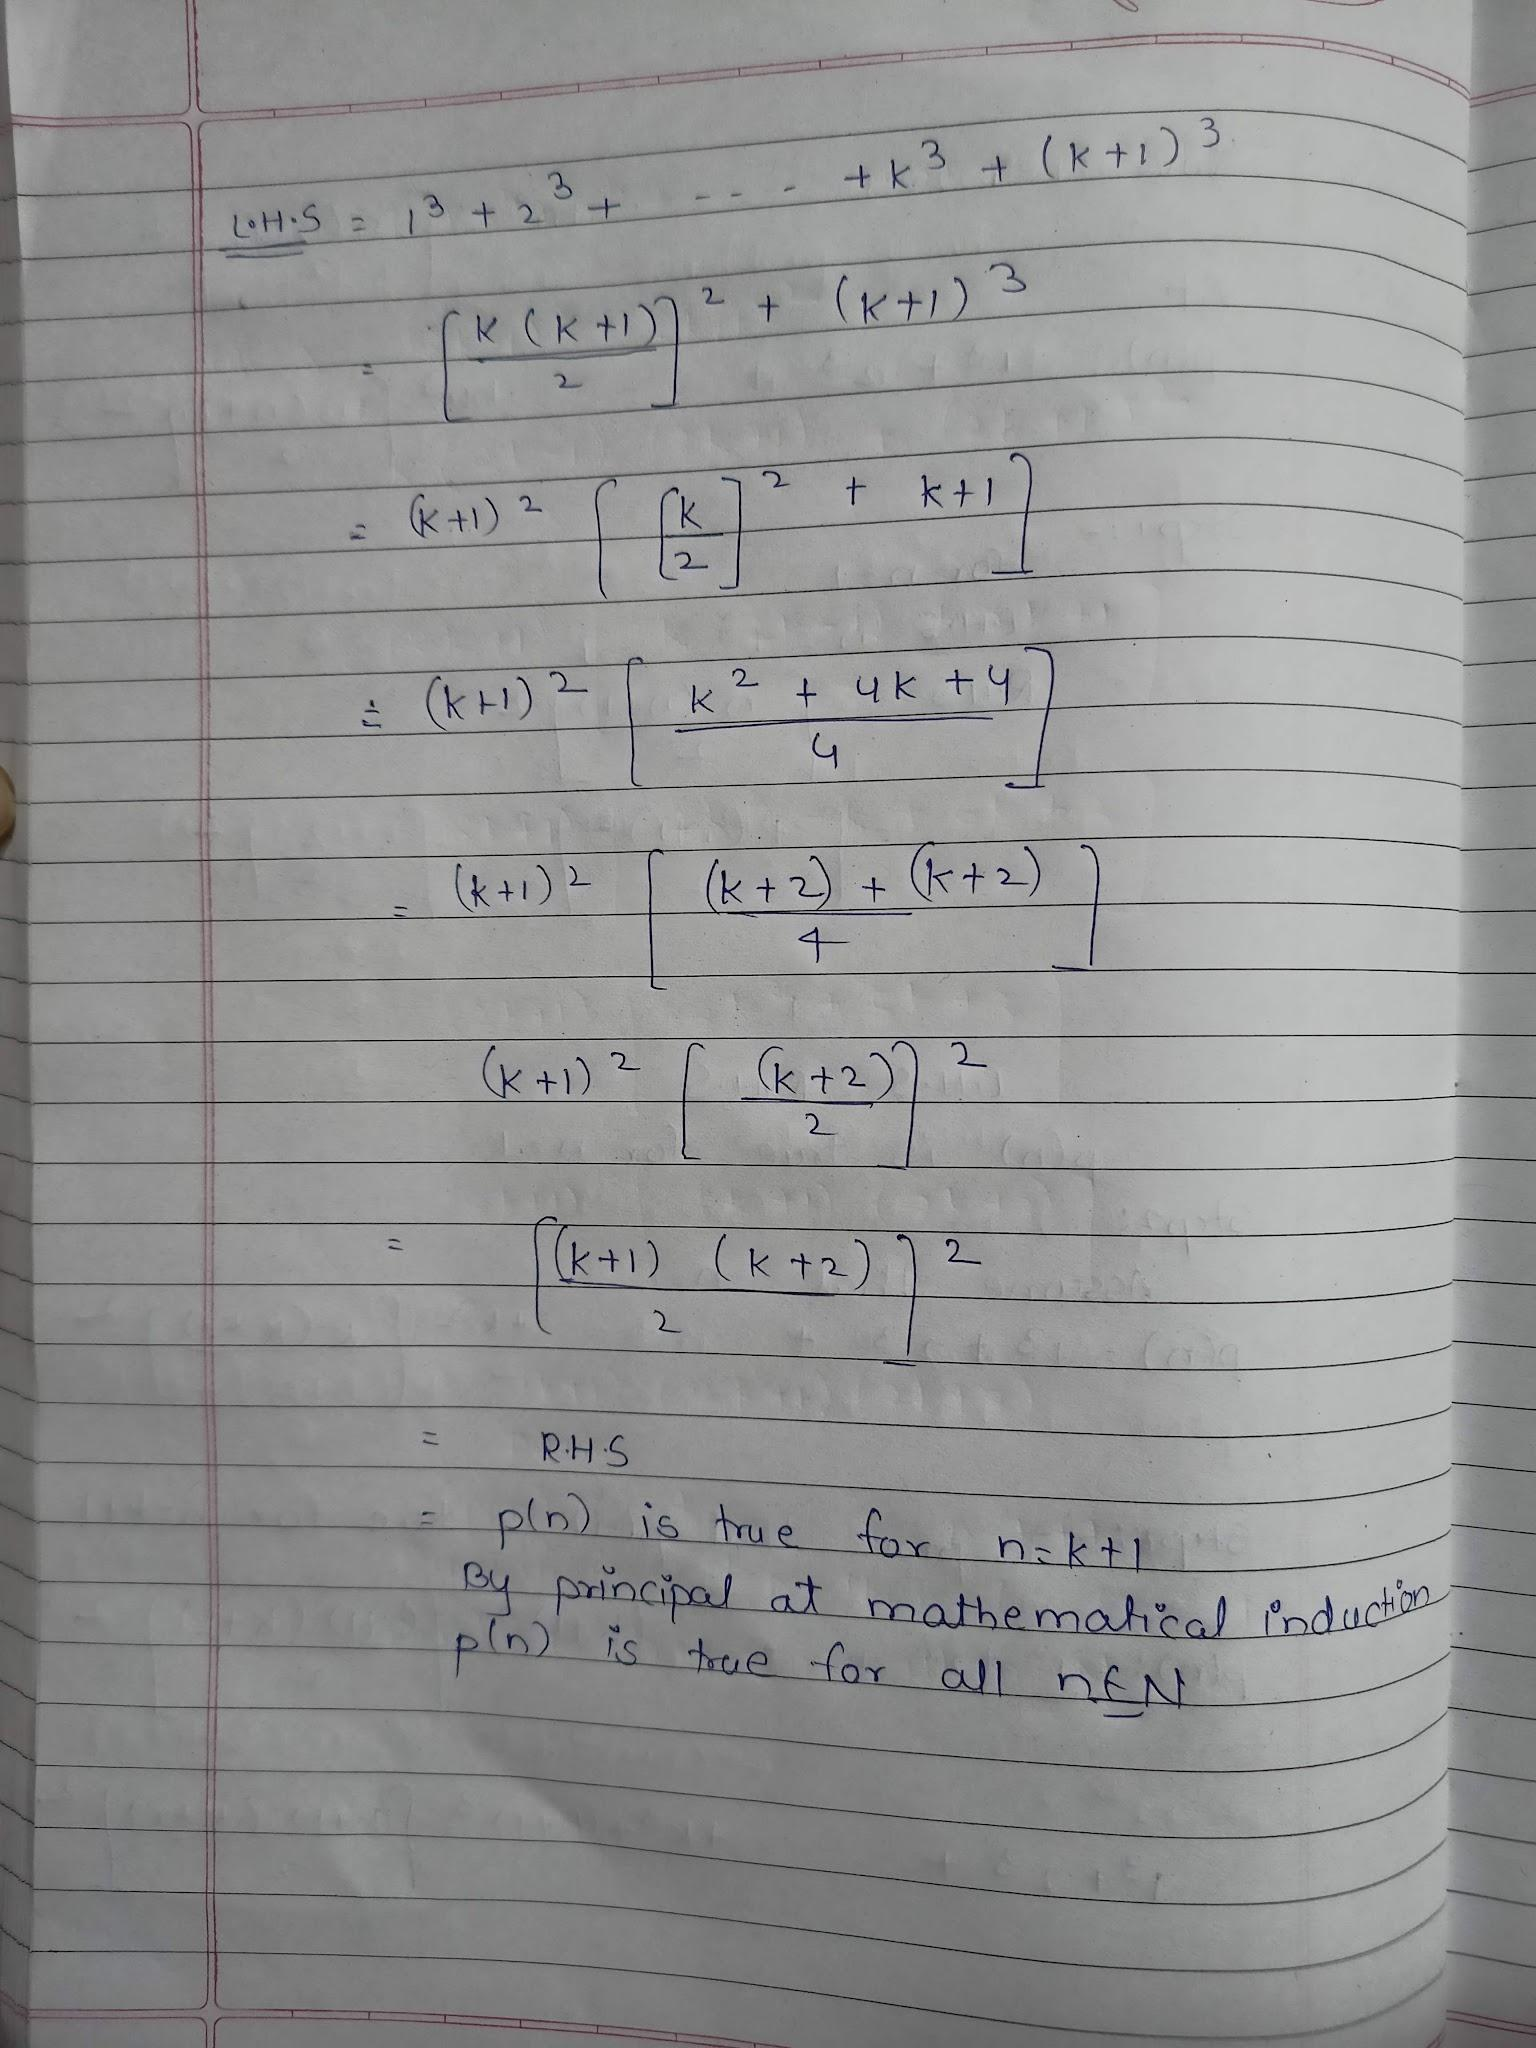 L.H.S = 1³ + 2³ + - - - - + k³ + (k+1)³
= [k(k+1)/2]² + (k+1)³
= (k+1)² [[k/2]² + k+1]
= (k+1)² [k² + 4k + 4 / 4]
= (k+1)² [(k+2) + (k+2) / 4]
(k+1)² [(k+2)/2]²
= [(k+1) (k+2) / 2]²
= R.H.S
= p(n) is true for n=k+1
By principal at mathematical induction
p(n) is true for all n∈N